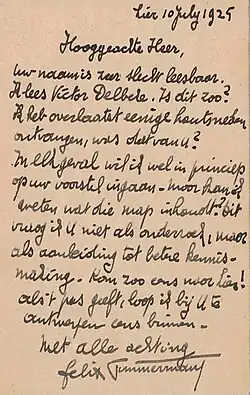 Lier 10 July 1925
Hooggeachte Heer,
Uw naam is zeer slecht leesbaar.
Ik lees Victor Delbeke. Is dit zoo?
Ik heb overlaatst eenige houtsneden
ontvangen, was dat van U?
In elk geval wil ik wel in princiep
op uw voorstel ingaan - maar kan ik
weten wat die map inhoudt? Dit
vraag ik U niet als onderzoek, maar
als aanleiding tot betere kennis-
making. Kom zoo eens naar Lier!
als 't pas geeft, loop ik bij U te
antwerpen eens binnen -
Met alle achting
Felix Timmermans